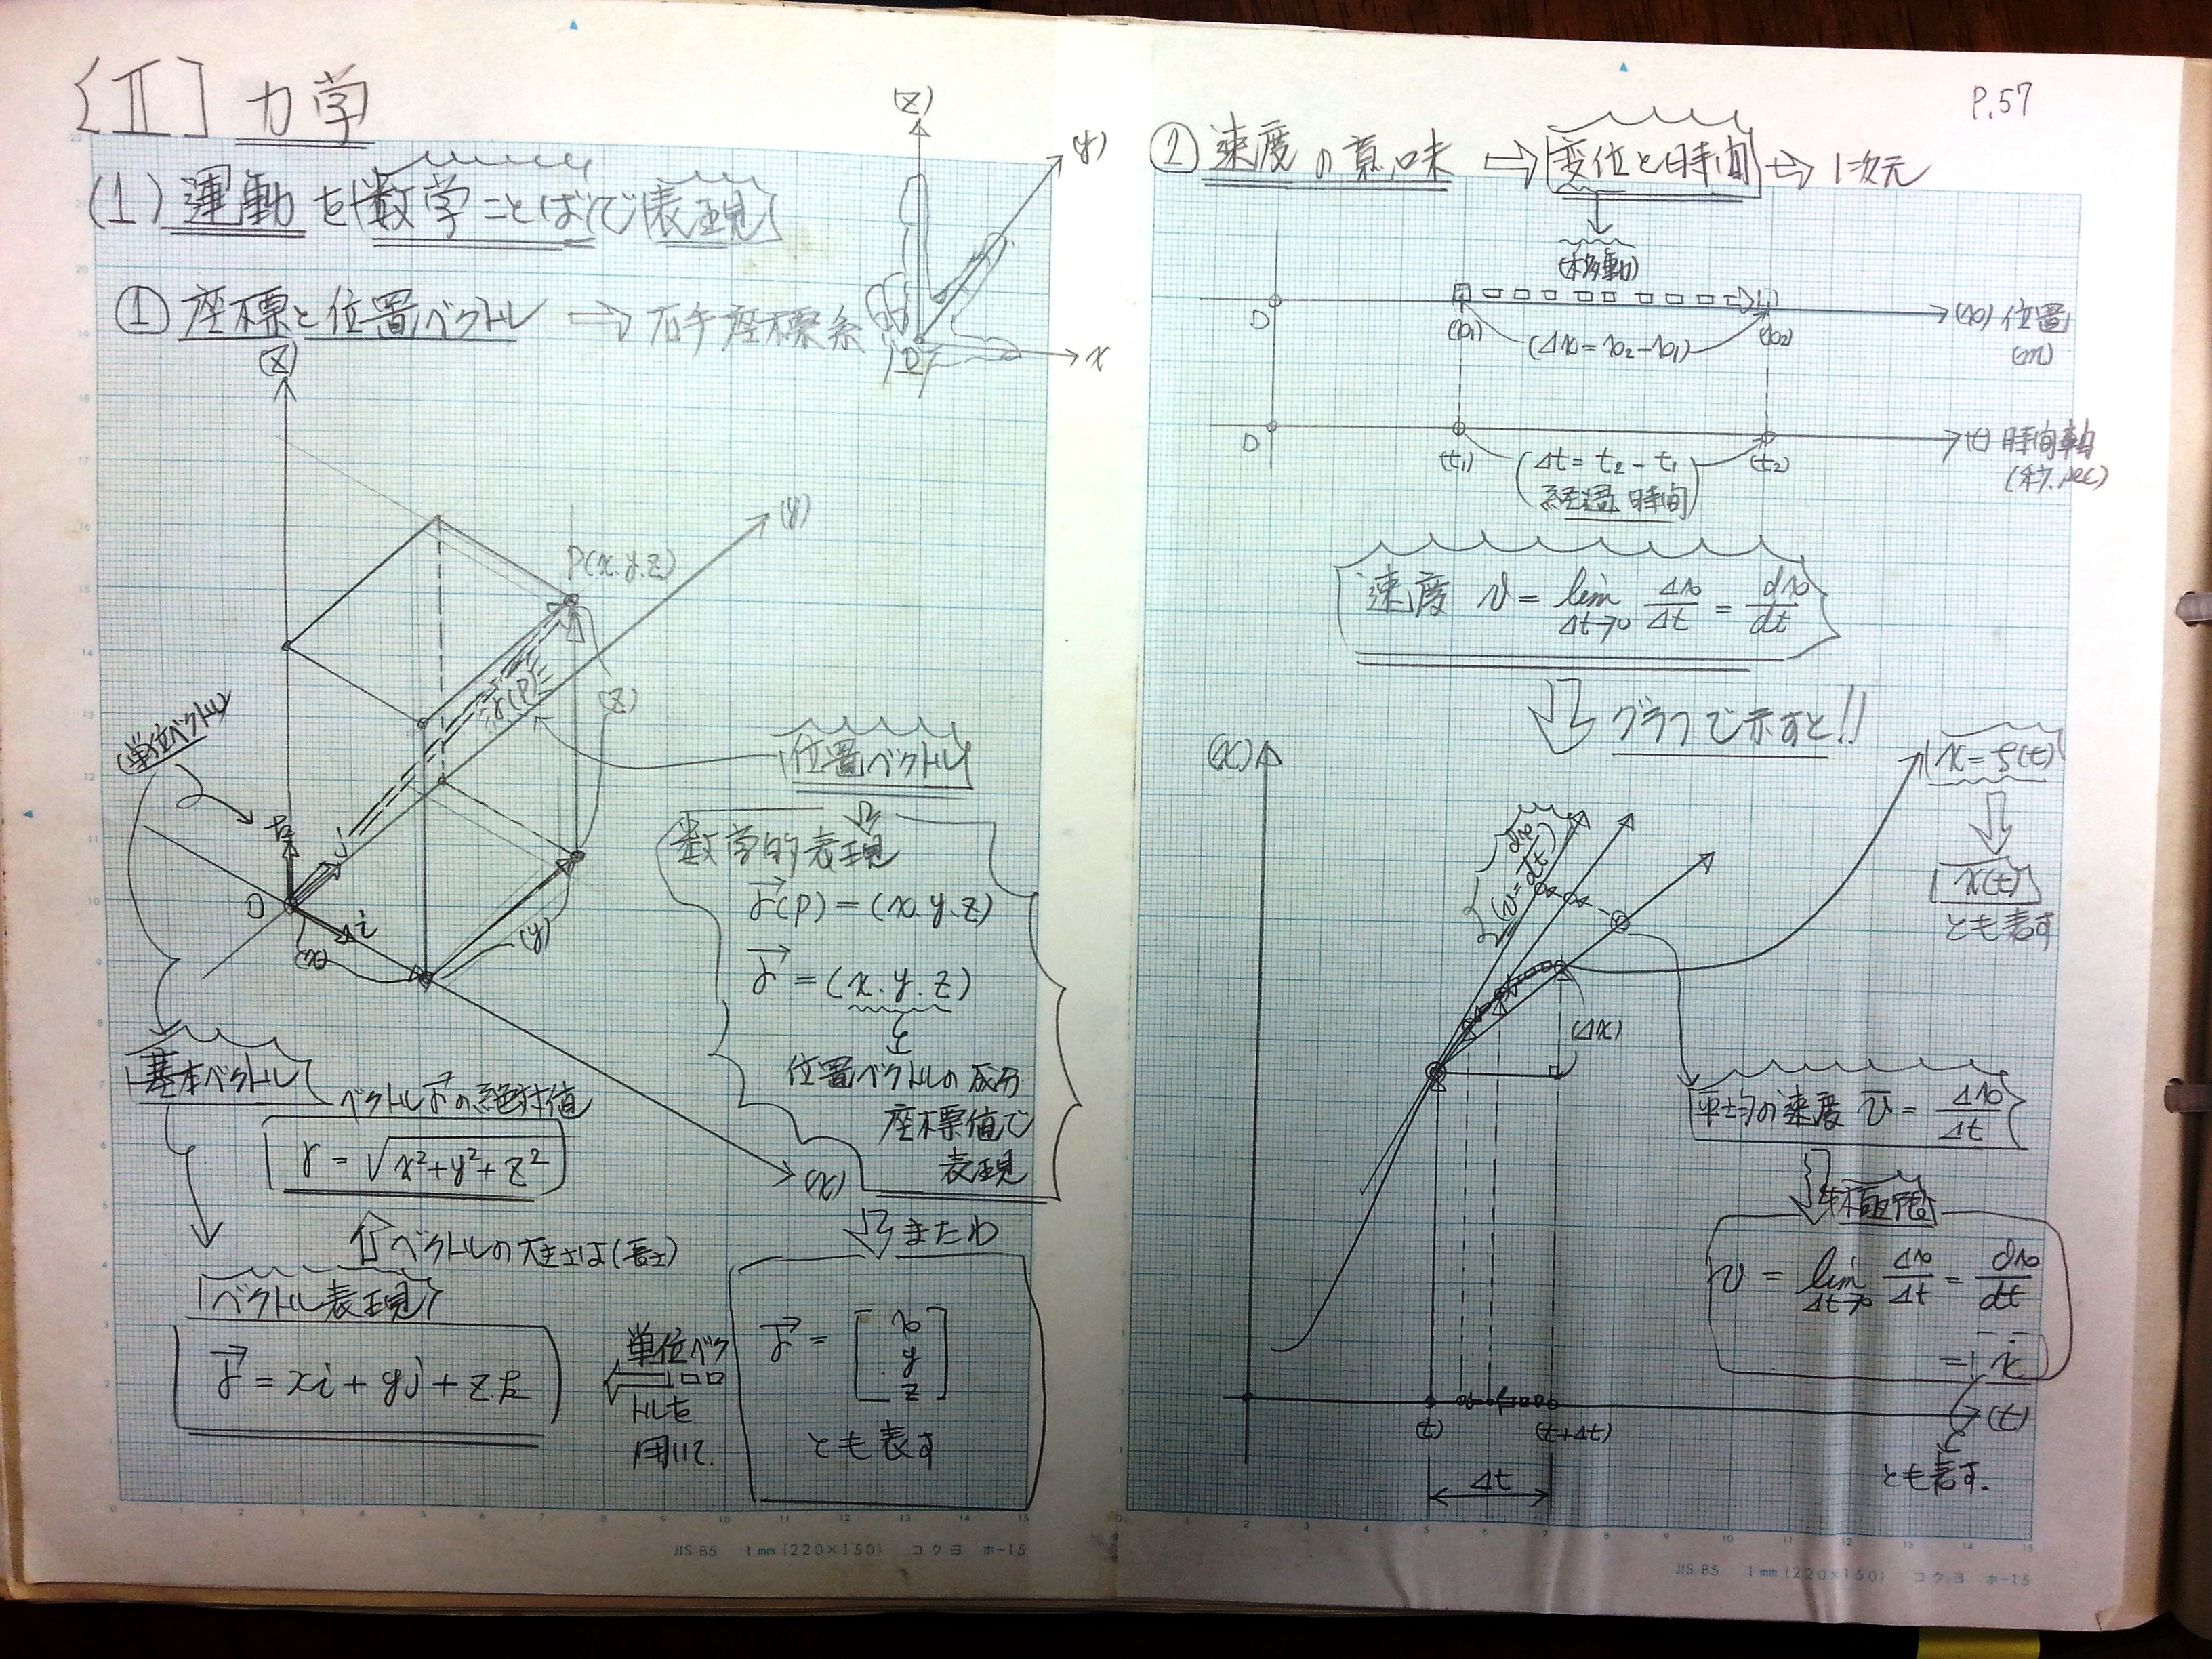 [II] 力学
(1) 運動を数学ことばで表現
① 座標と位置ベクトル ⇨ 右手座標系
(z)
(y)
x
O
(z)
(y)
P(x.y.z)
r(P)
(z)
単位ベクトル
位置ベクトル
k
j
i
O
(x)
(y)
(x)
数学的表現
r(P) = (x.y.z)
r = (x.y.z)
位置ベクトルの成分
座標値で
表現
基本ベクトル
ベクトルrの絶対値
r = √x²+y²+z²
⇧ベクトルの大きさは(長さ)
ベクトル表現
r = xi + yj + zk
単位ベク
トルを
用いて.
またわ
r = [x
y
z]
とも表す
JIS B5 1mm (220×150) コクヨ ホ-15
P.57
② 速度の意味 ⇨ 変位と時間 ⇨ 1次元
(移動)
O
(x₁)
(Δx = x₂-x₁)
(x₂)
(x) 位置
(m)
O
(t₁)
(Δt = t₂-t₁
経過時間)
(t₂)
(t) 時間軸
(秒.sec)
速度 v = lim Δt→0 Δx/Δt = dx/dt
グラフで示すと!!
(x)
x = f(t)
x(t)
とも表す
(v = dx/dt)
(Δx)
平均の速度 v̄ = Δx/Δt
極限
v = lim Δt→0 Δx/Δt = dx/dt
= ẋ
(t)
(t+Δt)
(t)
とも表す.
Δt
JIS B5 1mm (220×150) コクヨ ホ-15